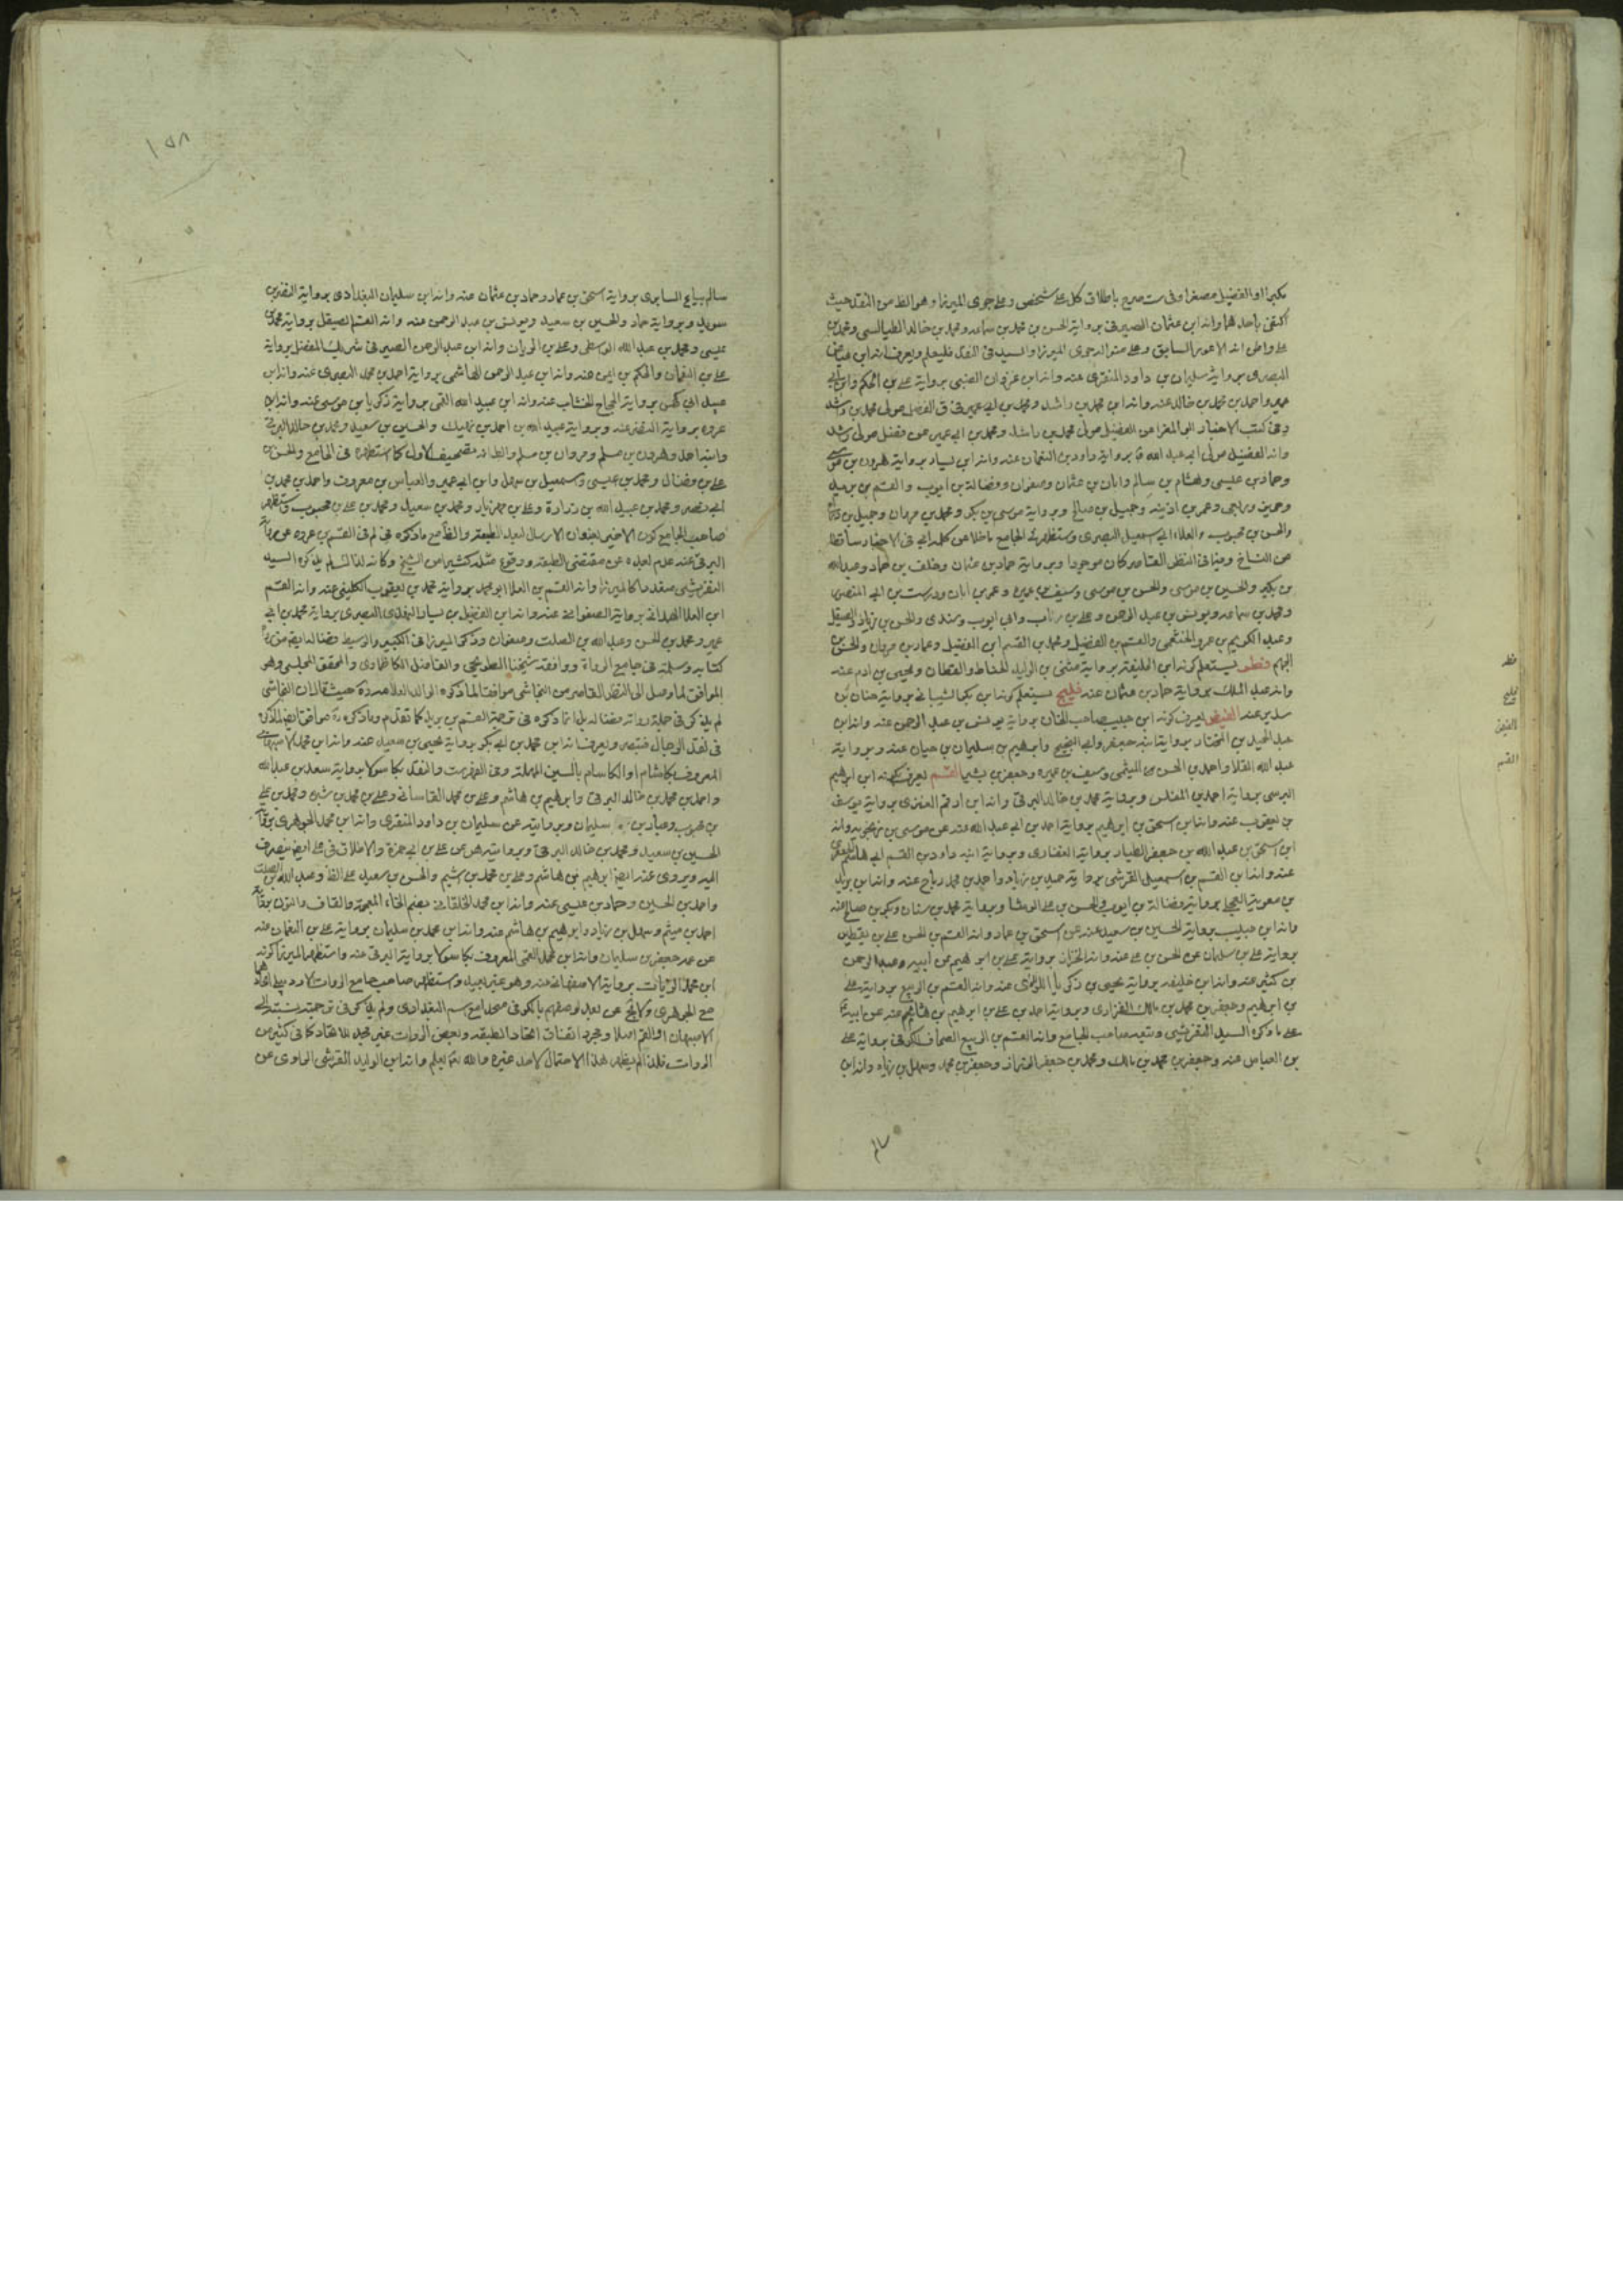 مكبرا او الفضيل مصغرا وفى ست صرح باطلاق كل على شخص وعليه جرى الميرزا وهو الظ من النقد حيث
اكتفى باحدهما وانه ابن عثمان الصيرفى برواية الحسن بن محمد بن سماعه ومحمد بن خالد الطيالسى ومحمد بن
على وانه الاعور السابق وعلى منواله جرى الميرزا والسيد فى النقد فليعلم ويعرف انه ابن عياض
البصرى برواية سليمان بن داود المنقرى عنه وانه ابن غزوان الضبى برواية على بن الحكم وابن ابى
عمير واحمد بن محمد بن خالد عنه وانه ابن محمد بن راشد ومحمد بن ابى عمير فى ق الفضل مولى محمد بن راشد
وفى كتب الاخبار ابى المغرا عن الفضيل مولى محمد بن راشد ومحمد بن ابى عمير عن فضل مولى راشد
وانه الفضيل مولى ابى عبد الله برواية داود بن النعمان عنه وانه ابن يسار برواية هرون بن
وحماد بن عيسى وهشام بن سالم وابان بن عثمان وصفوان وفضالة بن ايوب والقسم بن بريد
وحريز وربعى وعمر بن اذينه وجميل بن صالح وبرواية موسى بن بكر ومحمد بن مروان وجميل بن دراج
والحسن بن محبوب والعلاء ابى سمعيل البصرى وستظهر فى الجامع ماخلا عن كلمة ابى فى الاخبار ساقطا
من النساخ وفيما فى النظر القاصر كان موجودا وبرواية حماد بن عثمان وخلف بن حماد وعبد الله
بن بكير والحسين بن موسى والحسن بن موسى وسيف بن عميره وعمر بن ابان ودرست بن ابى المنصور
ومحمد بن سماعه ويونس بن عبد الرحمن وعلى بن رئاب وابى ايوب وسندى والحسن بن زياد الصيقل
وعبد الكريم بن عمرو الخثعمى والقسم بن الفضيل ومحمد بن القسم ابن الفضيل وعمار بن مروان والحسن بن
الجهم فطر يستعلم كونه ابن الخليفه برواية مثنى بن الوليد الحناط والقطان ويحيى بن ادم عنه
وانه عبد الملك برواية حماد بن عثمان عنه فليح يستعلم كونه ابن بكر الشيبانى برواية حنان بن
سدير عنه الفيض يعرف كونه ابن حبيب صاحب الخان برواية يونس بن عبد الرحمن عنه وانه ابن
عبد الحميد بن المختار برواية ابنه جعفر وابى النجيح وابرهيم بن سليمان بن حيان عنه وبرواية
عبد الله القلا واحمد بن الحسن الميثمى وسيف بن عميره وجعفر بن بشير القسم يعرف كونه ابن ابراهيم
البرسى برواية احمد بن المفلس وبرواية محمد بن خالد البرقى وانه ابن ادهم العنزى برواية يوسف
بن يعقوب عنه وانه ابن اسحق بن ابرهيم برواية احمد بن ابى عبد الله عنه عن موسى بن زنجويه وانه
ابن اسحق بن عبد الله بن جعفر الطيار برواية الغفارى وبرواية ابنه داود بن القسم ابى هاشم الجعفرى
عنه وانه ابن القسم بن اسمعيل القرشى برواية حميد بن زياد واحمد بن محمد رباح عنه وانه ابن بريد
بن معوية البجلى برواية فضالة بن ايوب والحسن بن على الوشا وبرواية محمد بن سنان وبكر بن صالح عنه
وانه ابن حبيب برواية الحسين بن سعيد عنه عن اسحق بن عمار وانه القسم بن الحسن على بن يقطين
برواية على بن سليمان عن الحسن بن على عنه وانه الخزاز برواية على بن ابرهيم عن ابيه وعبد الرحمن
بن كثير عنه وانه ابن خليفه برواية يحيى بن ذكريا اللؤلؤى عنه وانه القسم بن الربيع برواية على
بن ابرهيم وجعفر بن محمد بن مالك الفزارى وبرواية احمد بن على بن ابرهيم بن هاشم عنه عن ابيه
على ما ذكره السيد التفرشى وتبعه صاحب الجامع وانه القسم بن الربيع الصحاف الكوفى برواية على
بن العباس عنه وجعفر بن محمد بن مالك ومحمد بن جعفر الخزاز وجعفر بن محمد وسهل بن زياد وانه ابن
سالم
فطر
فليح
الفيض
القسم
١٥٨
سالم بياع السابرى برواية اسحق بن عمار وحماد بن عثمان عنه وانه ابن سليمان البغدادى برواية النضر بن
سويد وبرواية حماد والحسين بن سعيد ويونس بن عبد الرحمن عنه وانه القسم الصيقل برواية محمد بن
عيسى ومحمد بن عبد الله الواسطى وعلى بن الريان وانه ابن عبد الرحمن الصيرفى شريك المفضل برواية
على بن النعمان والحكم بن ايمن عنه وانه ابن عبد الرحمن الهاشمى برواية احمد بن محمد البصرى عنه وانه ابن
عبيد ابى كهمس برواية الحجاج الخشاب عنه وانه ابن عبيد الله القمى برواية ذكريا بن موسى عنه وانه ابن
عروه برواية النضر عنه وبرواية عبيد الله بن احمد بن نهيك والحسين بن سعيد ومحمد بن خالد البرقى
وابنه احمد وهرون بن مسلم ومروان بن مسلم والظ انه تصحيف الاول كما استظهره فى الجامع والحسن بن
على بن فضال ومحمد بن عيسى وسمعيل بن سهل وابن ابى عمير والعباس بن معروف واحمد بن محمد بن
ابى نصر ومحمد بن عبيد الله بن زرارة وعلى بن مهزيار ومحمد بن سعيد ومحمد بن على بن محبوب
صاحب الجامع كون الاخير بعنوان الارسال لبعد الطبقه والظ مع ما ذكره فى لم فى القسم بن عروه
البرقى عنه عدم بعده عن مقتضى الطبقه ووقوع مثله كثيرا من الشيخ وكانه لذا لم يذكره السيد
التفرشى صنعه كالميرزا وانه القسم بن العلا ابو محمد برواية محمد بن يعقوب الكلينى عنه وانه القسم
ابن العلا الهمدانى برواية الصفوانى عنه وانه ابن الفضيل بن يسار النهدى البصرى برواية محمد بن ابى
عمير ومحمد بن الحسن وعبد الله بن الصلت وصفوان وذكر الميرزا فى الكبير والوسيط فضاله ايض
كتابه وسلمه فى جامع الرواة ووافقه شيخنا الطريحى والفاضل الكاظماوى والمحقق المجلسى وهو
الموافق لما وصل الى النظر القاصر من النجاشى موافقا لما ذكره الوالد العلامه ره حيث قال ان النجاشى
لم يذكر فى جملة رواته فضاله بل انما ذكره فى ترجمة القسم بن بريد كما تقدم وما ذكره ره موافق ايض لما ذكر
فى نقد الرجال فتبصر ويعرف انه ابن محمد بن ابى بكر برواية يحيى بن سعيد عنه وانه ابن محمد الاصبهانى
المعروف بكاشام او الكاسام بالسين المهملة وفى الفهرست والنقد بكاسولا برواية سعد بن عبد الله
واحمد بن محمد بن خالد البرقى وابرهيم بن هاشم وعلى بن محمد القاسانى وعلى بن محمد بن شيره ومحمد بن على
بن محبوب وعباد بن سليمان وبروايته عن سليمان بن داود المنقرى وانه ابن محمد الجوهرى برواية
الحسين بن سعيد ومحمد بن خالد البرقى وبروايته هو عن على بن ابى حمزة والاطلاق فى على ايض ينصرف
اليه ويروى عنه ايض ابرهيم بن هاشم وعلى بن محمد بن اشيم والحسن بن سعيد على الظ وعبد الله بن الصلت
واحمد بن الحسين وحماد بن عيسى عنه وانه ابن محمد الخلقانى بضم الخاء المعجمة والقاف والنون برواية
احمد بن ميثم وسهل بن زياد وابرهيم بن هاشم عنه وانه ابن محمد بن سليمان برواية على بن النعمان عنه
عن عمه جعفر بن سليمان وانه ابن محمد القمى المعروف بكاسولا برواية البرقى عنه واستظهر الميرزا كونه
ابن محمد الزيات برواية الاصفهانى عنه وهو غير بعيد واستظهر صاحب جامع الرواة الاردبيلى اتحادهما
مع الجوهرى ولا يخ عن بعد لوصفهم بالكوفى صحه مع اسم البغدادى ولم يذكر فى ترجمته نسبته الى
الاصبهان او القم اصلا ومجرد اتفاق اتحاد الطبقه وبعض الروات غير مجد للاتحاد كما فى كثير من
الروات فلذا لم يظهر هذا الاحتمال لاحد غيره والله تع يعلم وانه ابن الوليد القرشى الراوى عن